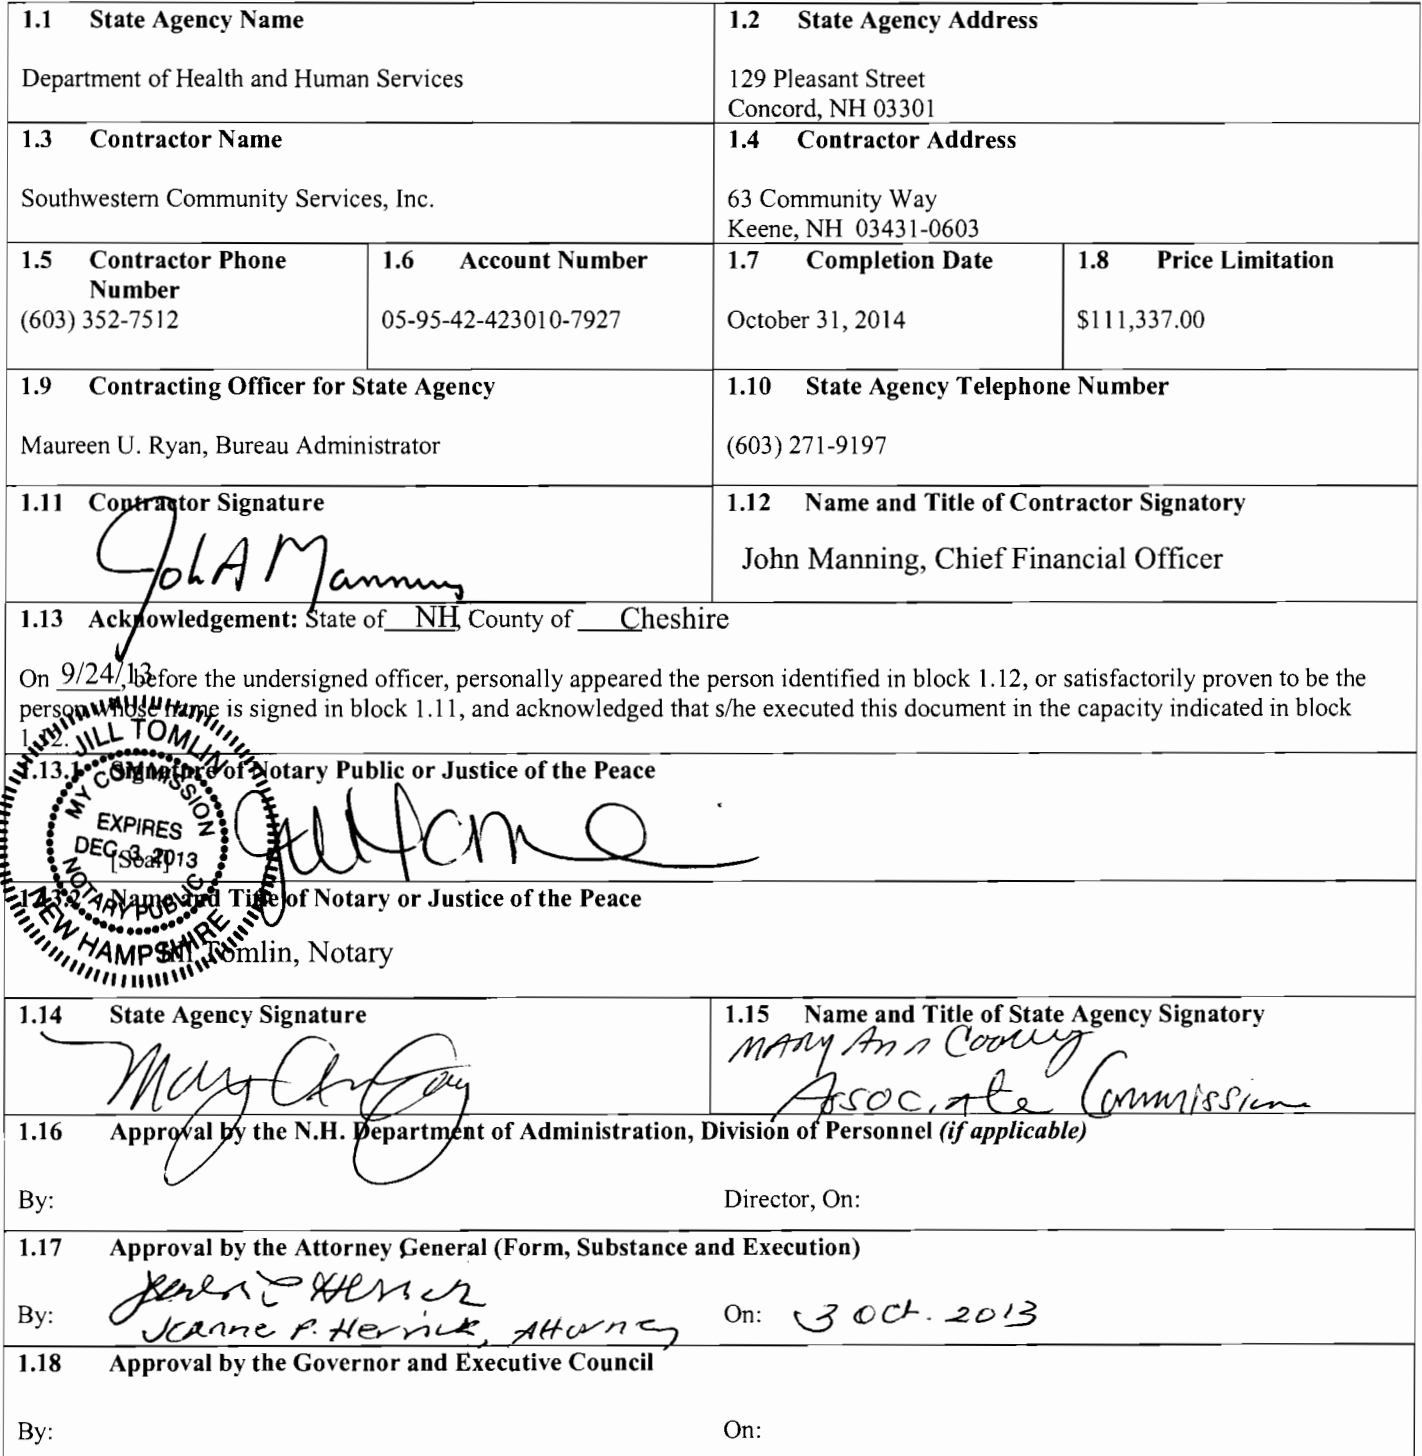 1.1 State Agency Name
Department of Health and Human Services
1.2 State Agency Address
129 Pleasant Street
Concord, NH 03301
1.3 Contractor Name
Southwestern Community Services, Inc.
1.4 Contractor Address
63 Community Way
Keene, NH 03431-0603
1.5 Contractor Phone
Number
(603) 352-7512
1.6 Account Number
05-95-42-423010-7927
1.7 Completion Date
October 31, 2014
1.8 Price Limitation
$111,337.00
1.9 Contracting Officer for State Agency
Maureen U. Ryan, Bureau Administrator
1.10 State Agency Telephone Number
(603) 271-9197
1.11 Contractor Signature
John A Manning
1.12 Name and Title of Contractor Signatory
John Manning, Chief Financial Officer
1.13 Acknowledgement: State of NH, County of Cheshire
On 9/24/13, before the undersigned officer, personally appeared the person identified in block 1.12, or satisfactorily proven to be the
person whose name is signed in block 1.11, and acknowledged that s/he executed this document in the capacity indicated in block
1.12.
JILL TOMLIN
MY COMMISSION
EXPIRES
DEC. 3, 2013
NOTARY PUBLIC
NEW HAMPSHIRE
1.13.1 Signature of Notary Public or Justice of the Peace
[Seal]
1.13.2 Name and Title of Notary or Justice of the Peace
Jill Tomlin, Notary
1.14 State Agency Signature
1.15 Name and Title of State Agency Signatory
Mary Ann Cooney
Associate Commissioner
1.16 Approval by the N.H. Department of Administration, Division of Personnel (if applicable)
By: Director, On:
1.17 Approval by the Attorney General (Form, Substance and Execution)
Jeanne P. Herrick, Attorney
By: On: 3 Oct. 2013
1.18 Approval by the Governor and Executive Council
By: On: